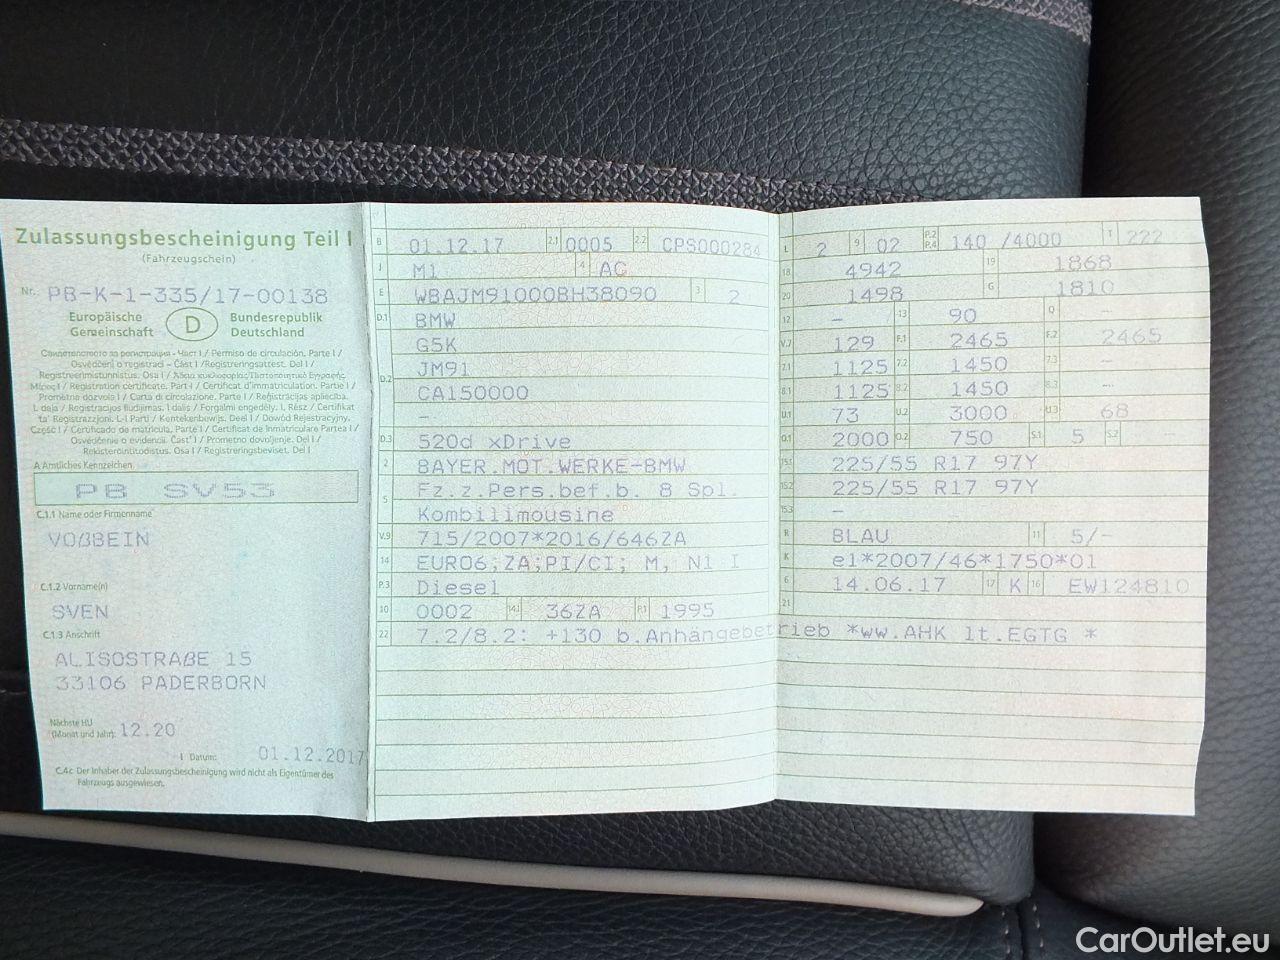 Zulassungsbescheinigung Teil I
(Fahrzeugschein)
Nr. PB-K-1-335/17-00138
Europäische Gemeinschaft
D
Bundesrepublik Deutschland
Свидетелството за регистрация - Част I / Permiso de circulación. Parte I /
Osvědčení o registraci - Část I / Registreringsattest. Del I /
Registreerimistunnistus. Osa I /
/ Registration certificate. Part I / Certificat d'immatriculation. Partie I /
Prometna dozvola I / Carta di circolazione. Parte I / Reģistrācijas apliecība.
I. daļa / Registracijos liudijimas. I dalis / Forgalmi engedély. I. Rész / Certifikat
ta' Reġistrazzjoni. L-I Parti / Kentekenbewijs. Deel I / Dowód Rejestracyjny.
Część I / Certificado de matrícula. Parte I / Certificat de înmatriculare Partea I /
Osvedčenie o evidencii. Časť I / Prometno dovoljenje. Del I /
Rekisteröintitodistus. Osa I / Registreringsbeviset. Del I
A Amtliches Kennzeichen
PB SV53
C.1.1 Name oder Firmenname
VOßBEIN
C.1.2 Vorname(n)
SVEN
C.1.3 Anschrift
ALISOSTRAßE 15
33106 PADERBORN
Nächste HU
(Monat und Jahr): 12.20
I Datum: 01.12.2017
C.4c Der Inhaber der Zulassungsbescheinigung wird nicht als Eigentümer des
Fahrzeugs ausgewiesen.
B 01.12.17 2.1 0005 2.2 CPS000284
J M1 4 AC
E WBAJM91000BH38090 3 2
D.1 BMW
G5K
D.2 JM91
CA150000
–
D.3 520d xDrive
2 BAYER.MOT.WERKE-BMW
5 Fz.z.Pers.bef.b. 8 Spl.
Kombilimousine
V.9 715/2007*2016/646ZA
14 EURO6;ZA;PI/CI; M, N1 I
P.3 Diesel
10 0002 14.1 36ZA P.1 1995
22 7.2/8.2: +130 b.Anhängebetrieb *ww.AHK lt.EGTG *
L 2 9 02 P.2 P.4 140 /4000 T 222
18 4942 19 1868
20 1498 G 1810
12 – 13 90 Q –
V.7 129 F.1 2465 F.2 2465
7.1 1125 7.2 1450 7.3 –
8.1 1125 8.2 1450 8.3 –
U.1 73 U.2 3000 U.3 68
O.1 2000 O.2 750 S.1 5 S.2 –
15.1 225/55 R17 97Y
15.2 225/55 R17 97Y
15.3 –
R BLAU 11 5/-
K e1*2007/46*1750*01
6 14.06.17 17 K 16 EW124810
21
CarOutlet.eu